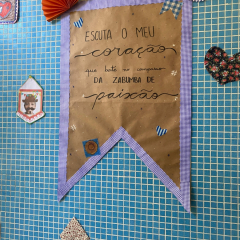 ESCUTA O MEU
coração
que bate no compasso
DA ZABUMBA DE
paixão